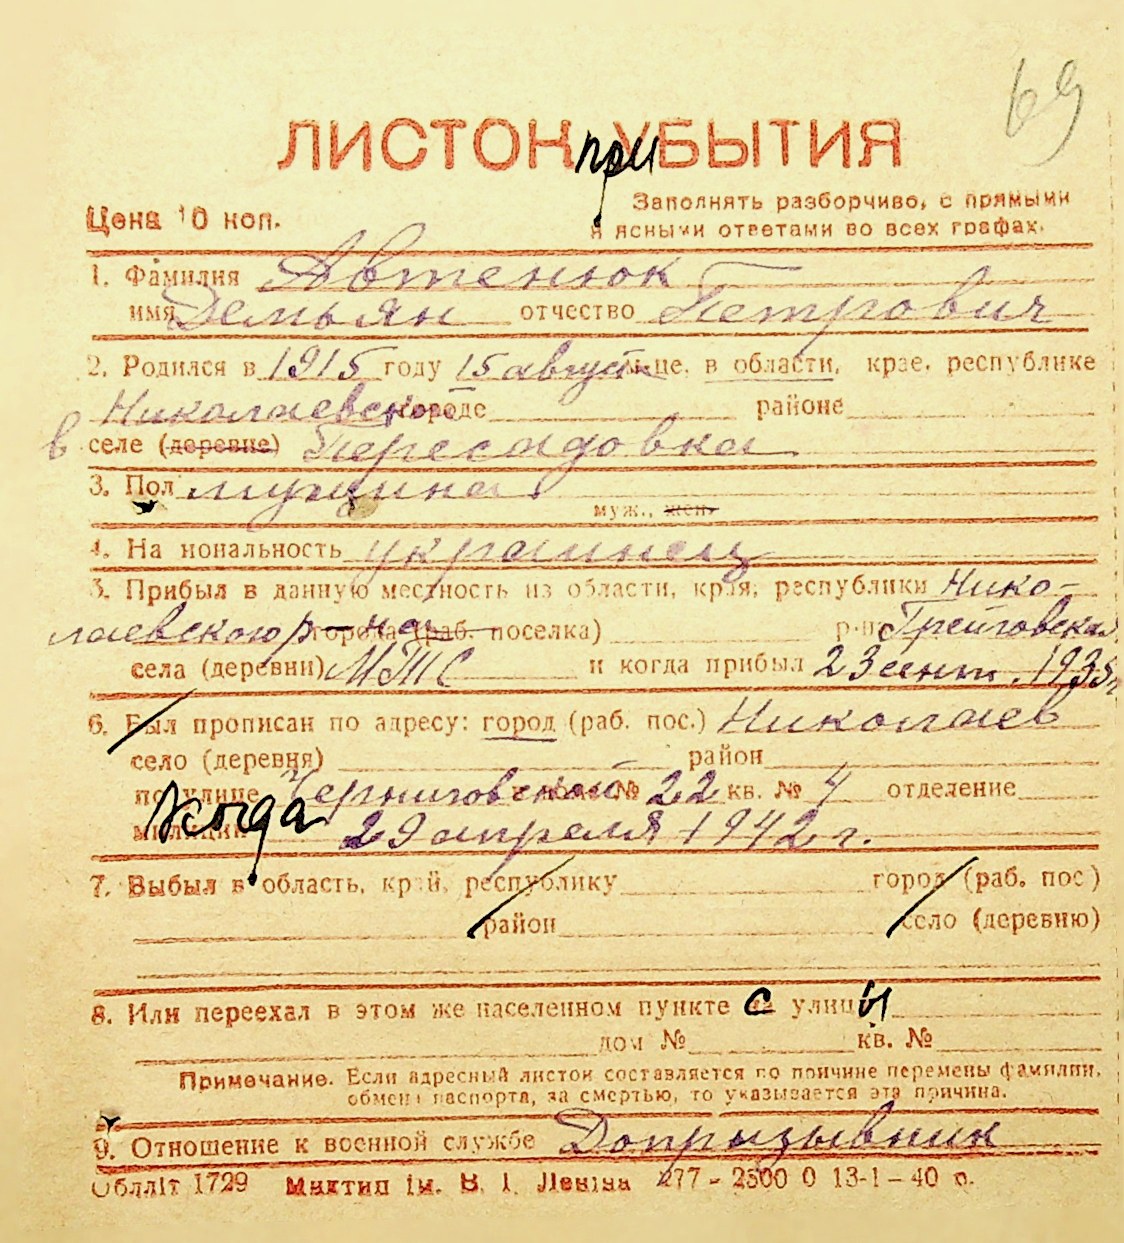 69
ЛИСТОК при УБЫТИЯ
Цена 10 коп.
Заполнять разборчиво, с прямыми
и ясными ответами во всех графах.
1. Фамилия Автенюк
имя Демьян отчество Петрович
2. Родился в 1915 году 15 август м-це, в области, крае, республике
Николаевско городе районе
в селе (деревне) Пересадовка
3. Пол мущина
муж., жен.
4. На иональность украинец
5. Прибыл в данную местность из области, края, республики Нико-
лаевскою р-на города (раб. поселка) р-на Грейговская
села (деревни) МТС и когда прибыл 23 сент. 1935 г
6. Был прописан по адресу: город (раб. пос.) Николаев
село (деревня) район
по улице Черниговской № 22 кв. № 4 отделение
милиции Когда 29 апреля 1942 г.
7. Выбыл в область, край, республику город (раб. пос)
район село (деревню)
8. Или переехал в этом же населенном пункте с улицы
дом № кв. №
Примечание. Если адресный листок составляется по причине перемены фамилии,
обмена паспорта, за смертью, то указывается эта причина.
9. Отношение к военной службе Допризывник
Облліт 1729 Миктип ім. В. І. Леніна 277 - 2500 0 13-1 - 40 р.